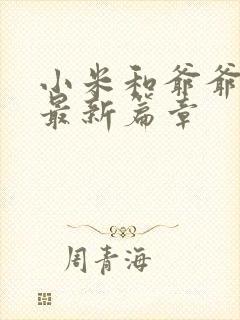 小米和爷爷
最新篇章
周青海